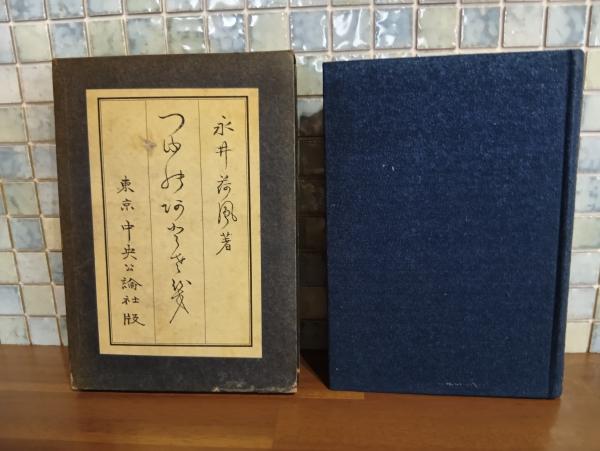 永井荷風著
つゆのあとさき
東京 中央公論社版